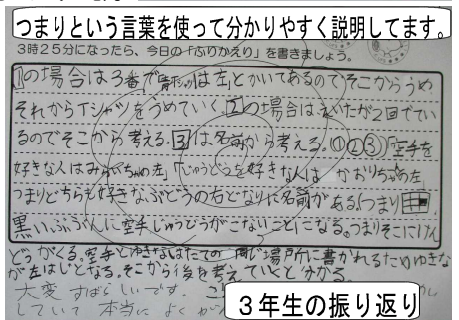 つまりという言葉を使って分かりやすく説明してます。
3時25分になったら、今日の「ふりかえり」を書きましょう。
①の場合は3番が「青シャツは左」とかいてあるのでそこからうめ
それからTシャツをうめていく。②の場合は が2回でてい
るのでそこから考える。③は名前から考える。①②③「空手を
好きな人はみらいちゃんの左」「じゅうどうを好きな人は かおりちゃんの左」
つまりどちらも好きなぶどうの右となりに名前がある。つまり
黒いぶぶんに空手じゅうどうがこないことになる。つまりそこにけん
どうがくる。空手とゆきなはたての同じ場所に書かれるためゆきな
が左はじとなる。そこから後を考えていくと分かる。
大変すばらしいです。
していて 本当に よく
3年生の振り返り